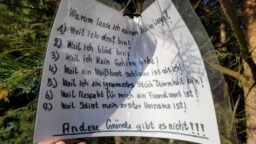 Warum lasse ich meinen Müll liegen?
1) Weil ich doof bin!
2) Weil ich blöd bin!
3) Weil ich kein Gehirn habe!
4) Weil ein Weißbrot schlauer ist als ich!
5) Weil ich ein ignorantes Stück Dummheit bin!
6) Weil Respekt für mich ein Fremdwort ist!
7) Weil Idiot mein erster Vorname ist!
Andere Gründe gibt es nicht!!!